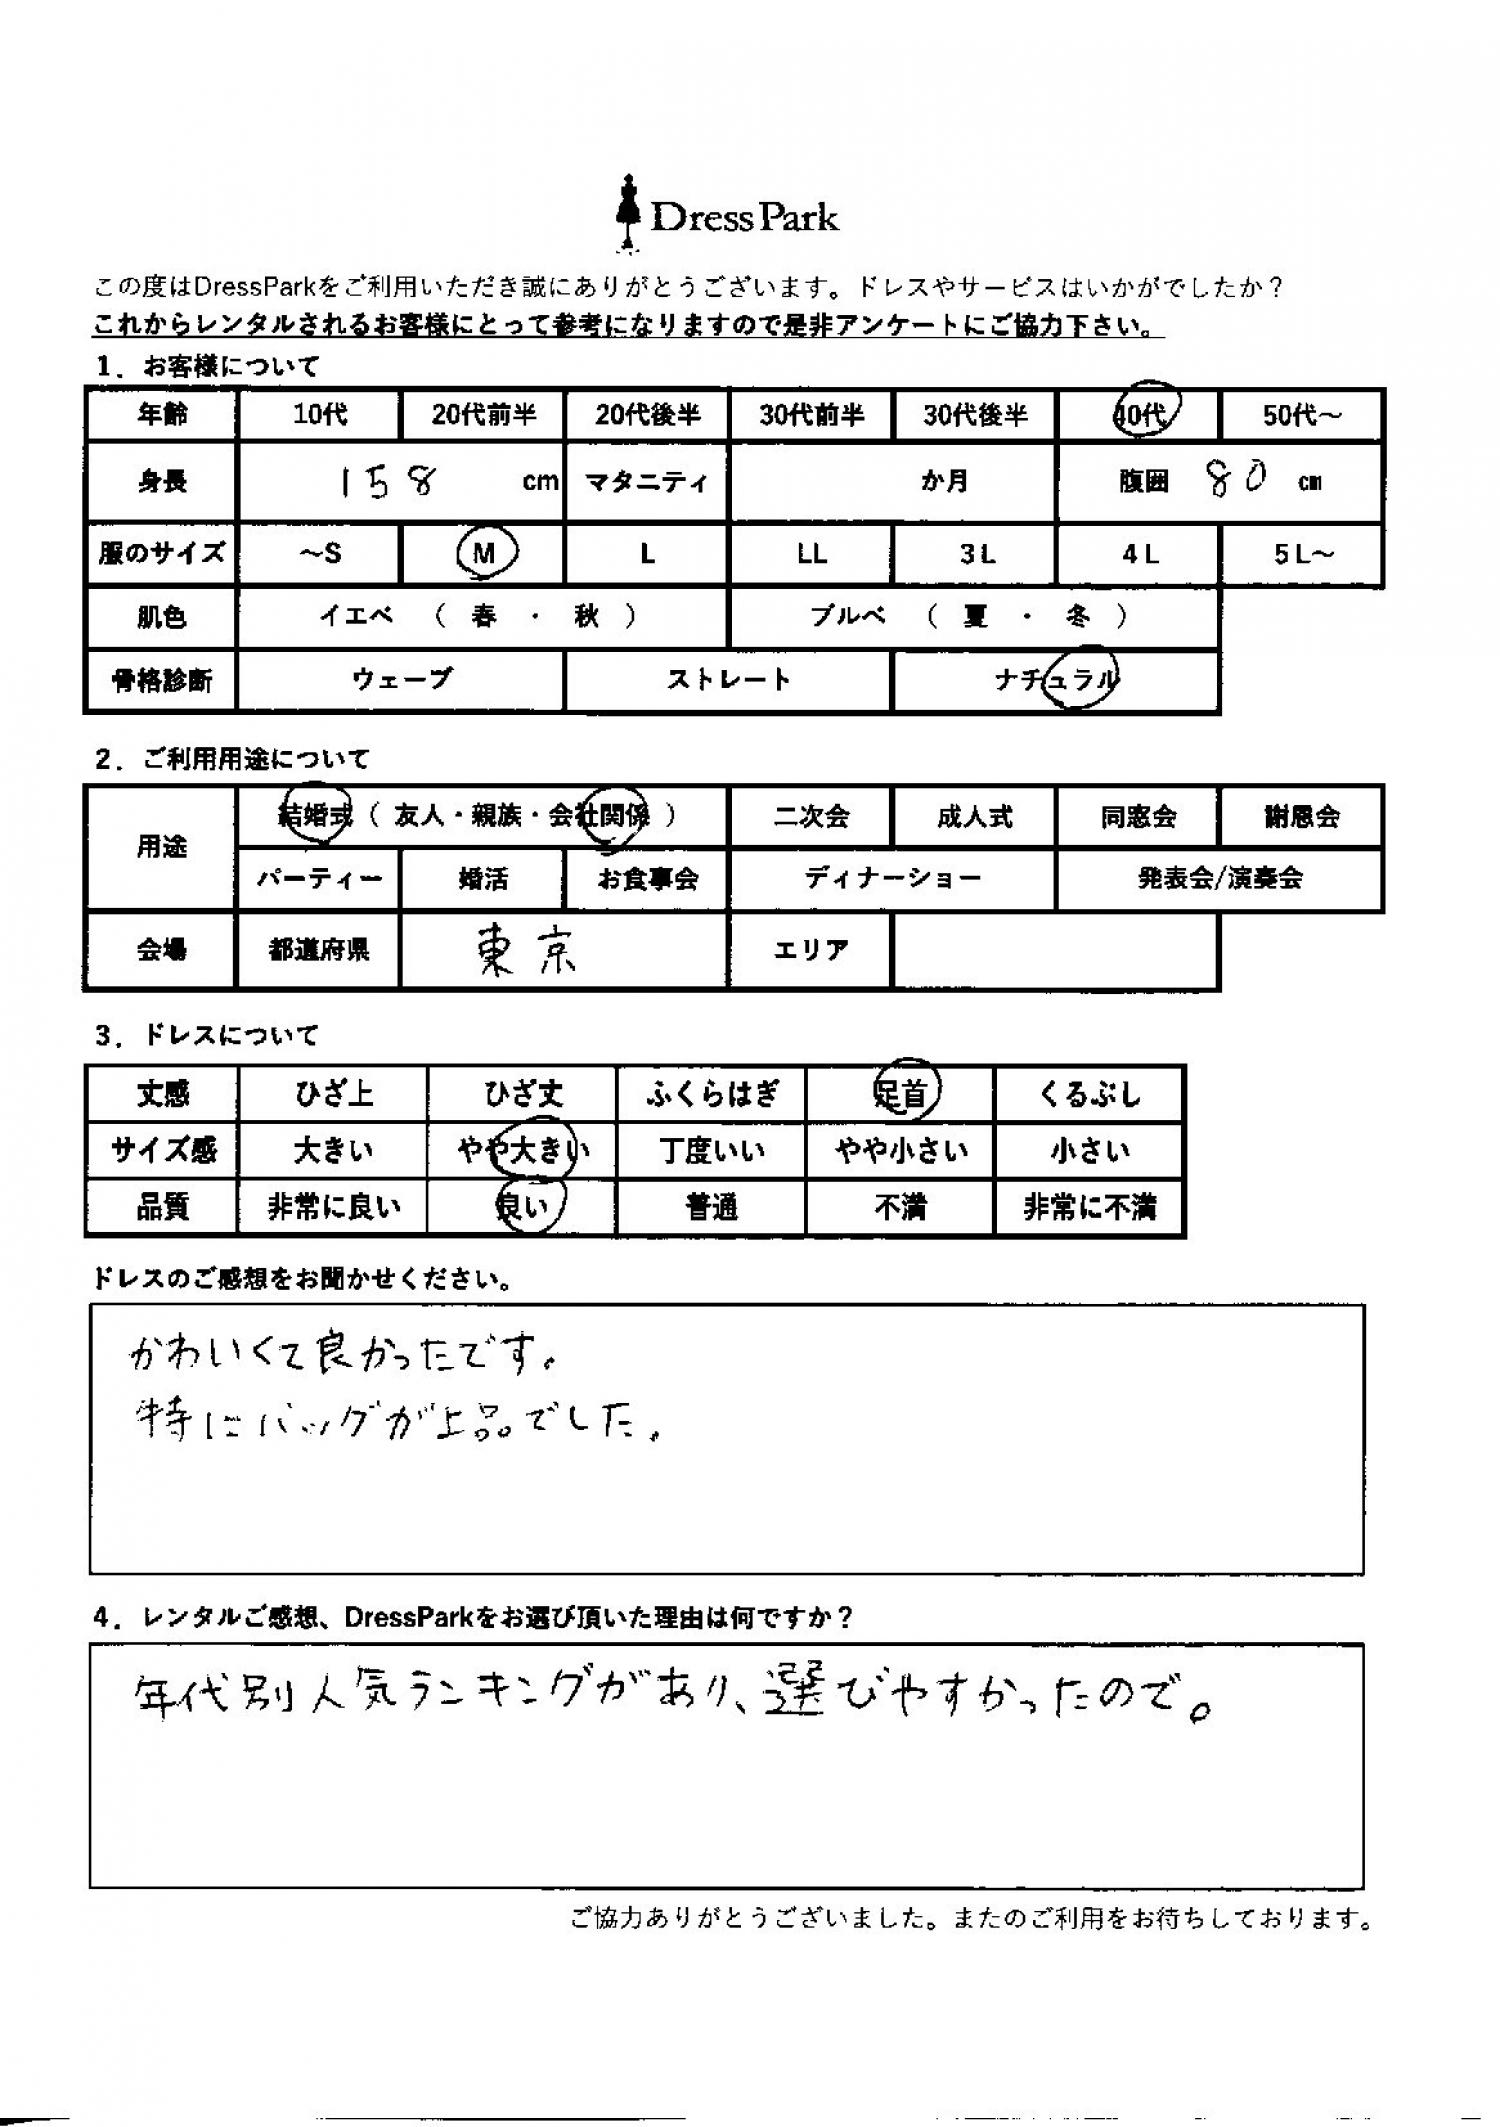 DressPark
この度はDressParkをご利用いただき誠にありがとうございます。ドレスやサービスはいかがでしたか？
これからレンタルされるお客様にとって参考になりますので是非アンケートにご協力下さい。
1．お客様について
年齢 10代 20代前半 20代後半 30代前半 30代後半 40代 50代～
身長 158 cm マタニティ か月 腹囲 80 cm
服のサイズ ～S M L LL 3L 4L 5L～
肌色 イエベ （ 春 ・ 秋 ） ブルベ （ 夏 ・ 冬 ）
骨格診断 ウェーブ ストレート ナチュラル
2．ご利用用途について
用途 結婚式（ 友人・親族・会社関係 ） 二次会 成人式 同窓会 謝恩会
パーティー 婚活 お食事会 ディナーショー 発表会/演奏会
会場 都道府県 東京 エリア
3．ドレスについて
丈感 ひざ上 ひざ丈 ふくらはぎ 足首 くるぶし
サイズ感 大きい やや大きい 丁度いい やや小さい 小さい
品質 非常に良い 良い 普通 不満 非常に不満
ドレスのご感想をお聞かせください。
かわいくて良かったです。
特にバッグが上品でした。
4．レンタルご感想、DressParkをお選び頂いた理由は何ですか？
年代別人気ランキングがあり、選びやすかったので。
ご協力ありがとうございました。またのご利用をお待ちしております。